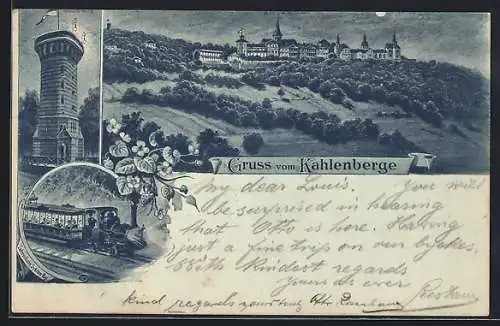 Gruss vom Kahlenberge
My dear Louis. You will
be surprised in hearing
that Otto is here. Having
just a fine trip on our bycikes,
With kindest regards
Yours as ever
kind regards yours truly Otto